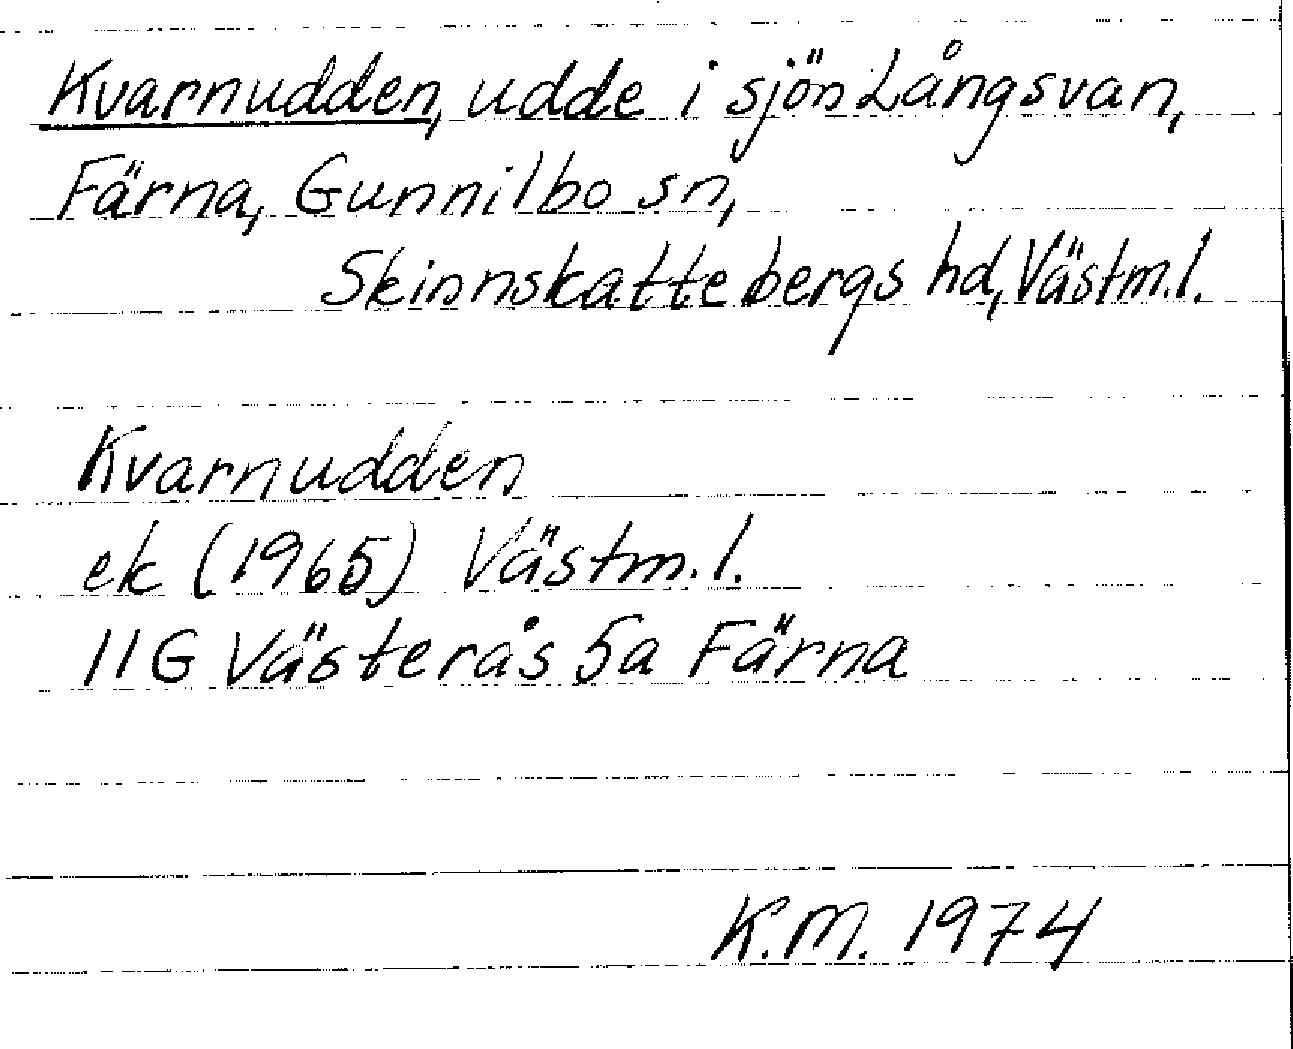 Kvarnudden, udde i sjön Långsvan,
Färna, Gunnilbo sn,
Skinnskattebergs hd, Västm.l.
Kvarnudden
ek (1965) Västm.l.
11G Västerås 5a Färna
K.M. 1974